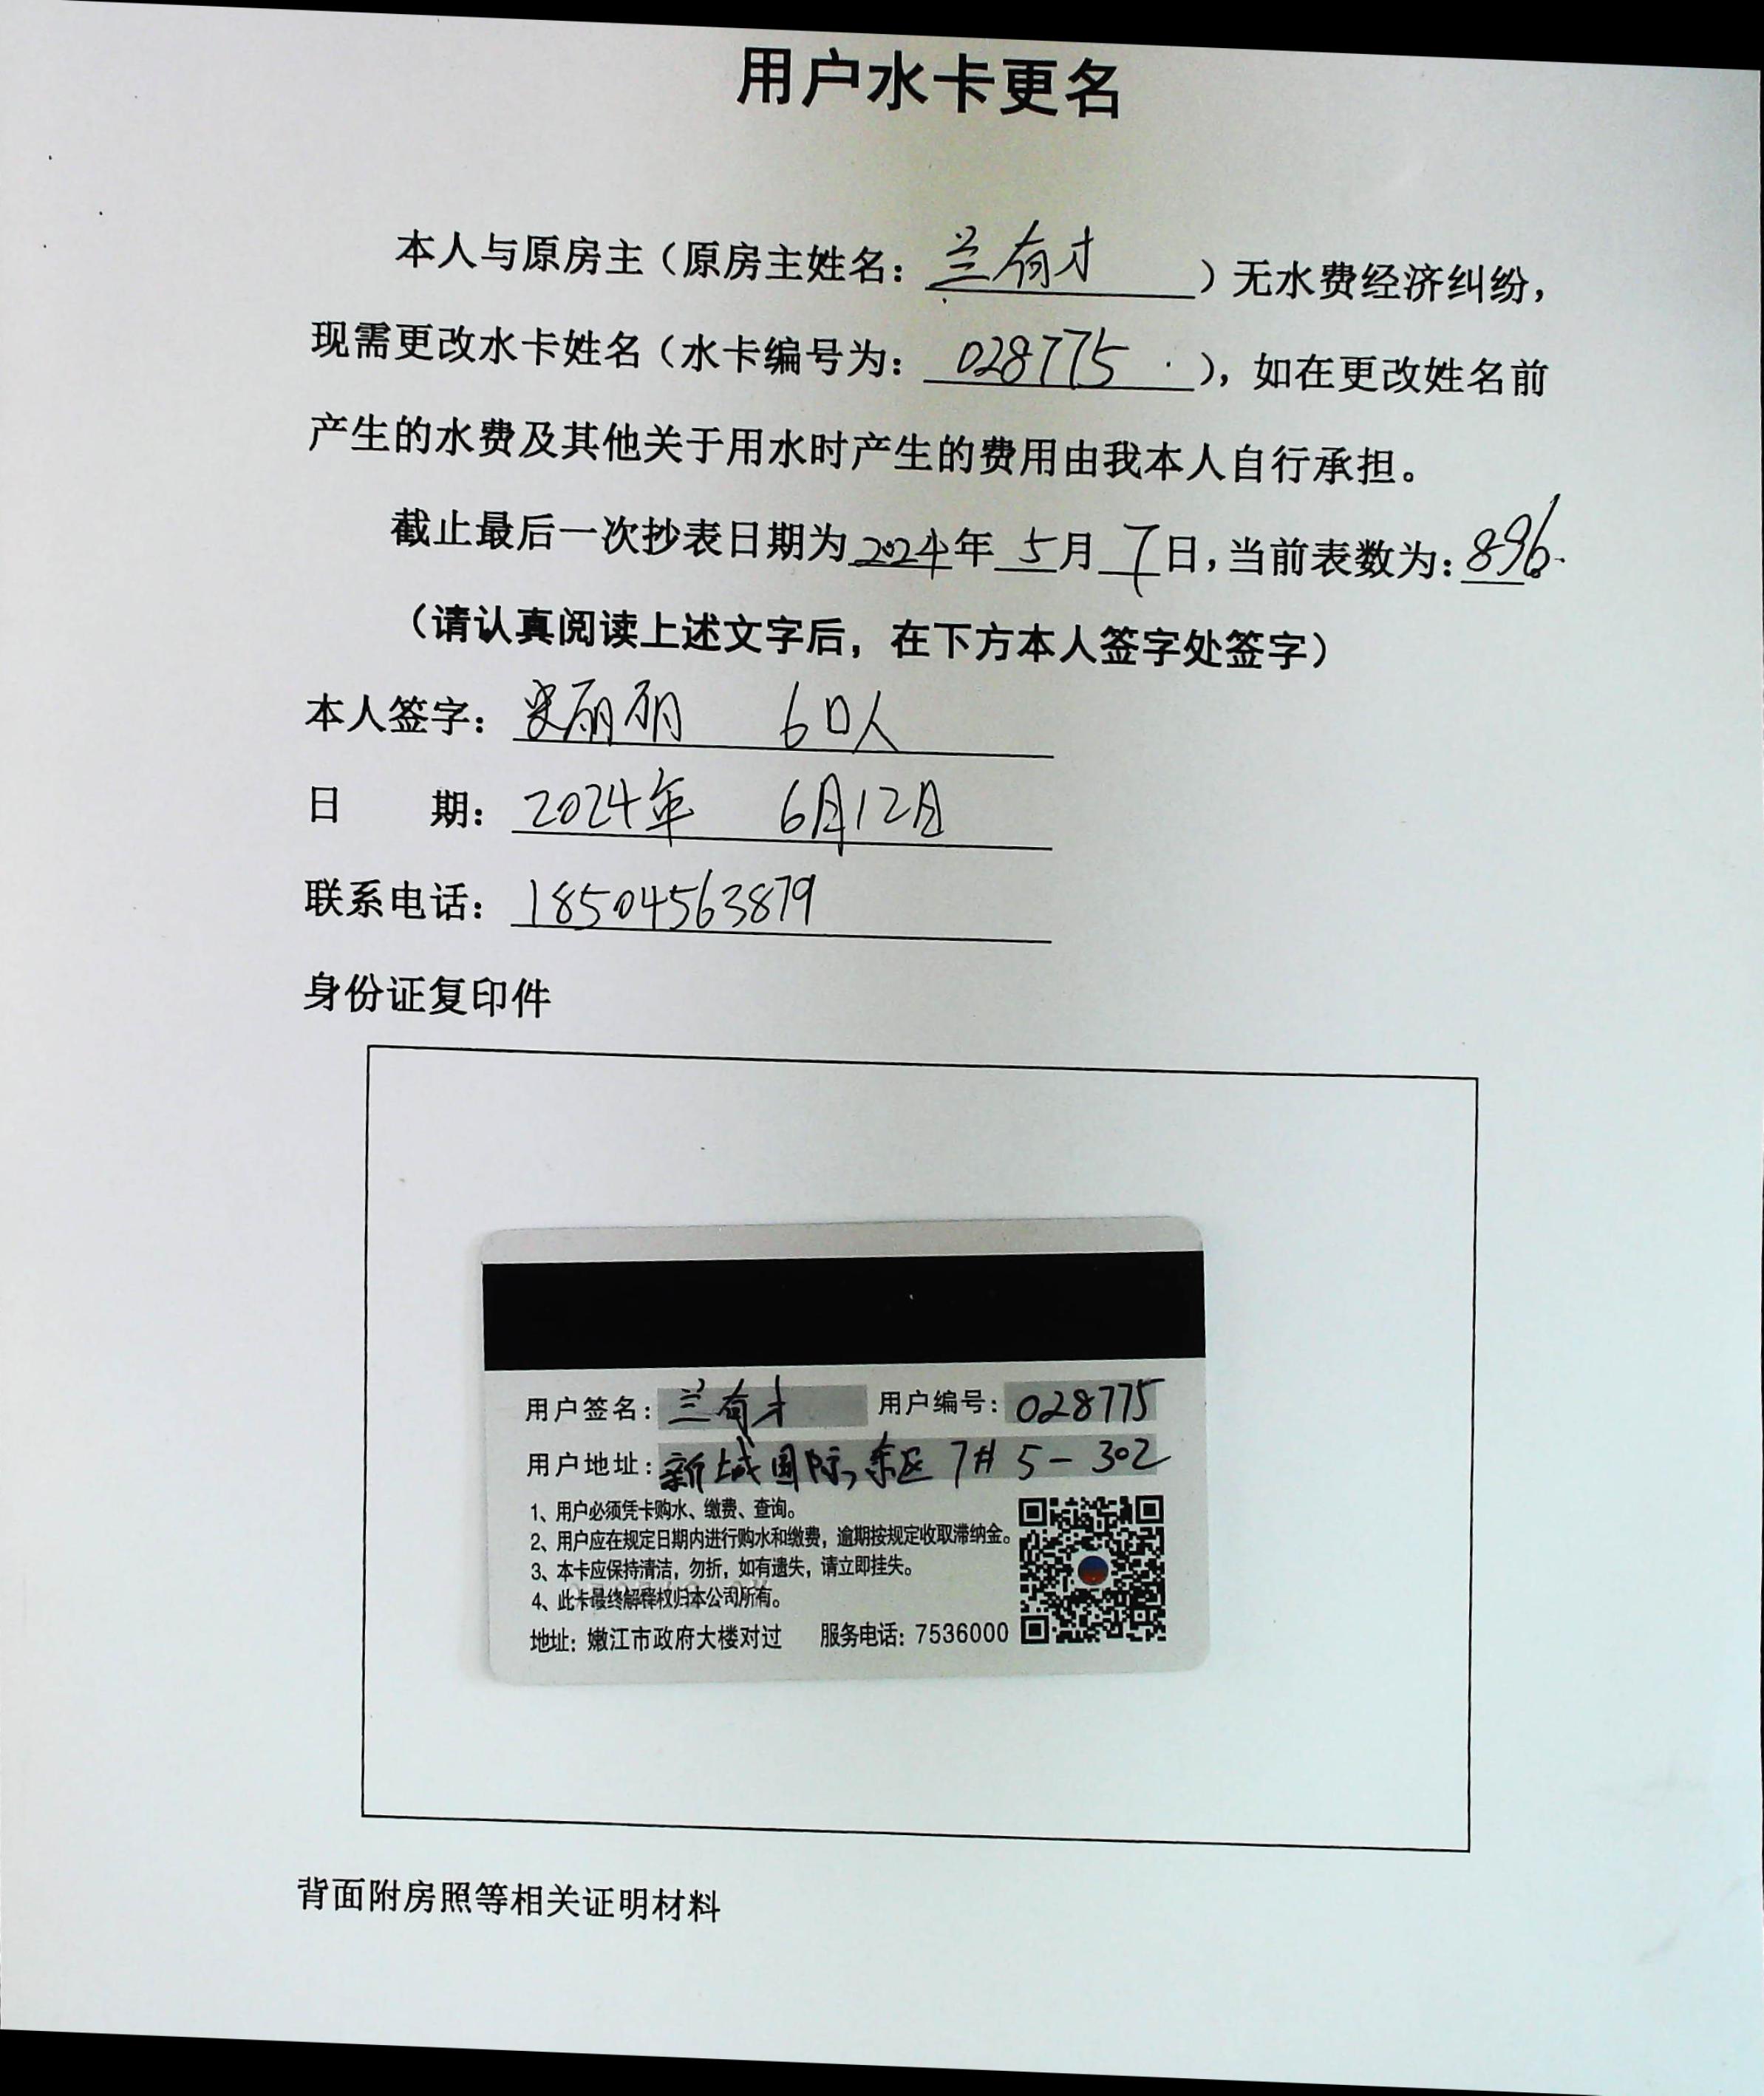 用户水卡更名
本人与原房主（原房主姓名：兰有才）无水费经济纠纷，
现需更改水卡姓名（水卡编号为：028775），如在更改姓名前
产生的水费及其他关于用水时产生的费用由我本人自行承担。
截止最后一次抄表日期为2024年5月7日，当前表数为：896。
（请认真阅读上述文字后，在下方本人签字处签字）
本人签字：丽丽 6口人
日 期：2024年 6月12日
联系电话：18504563879
身份证复印件
用户签名：兰有才 用户编号：028775
用户地址：新城国际，东区 7# 5-302
1、用户必须凭卡购水、缴费、查询。
2、用户应在规定日期内进行购水和缴费，逾期按规定收取滞纳金。
3、本卡应保持清洁，勿折，如有遗失，请立即挂失。
4、此卡最终解释权归本公司所有。
地址：嫩江市政府大楼对过 服务电话：7536000
背面附房照等相关证明材料